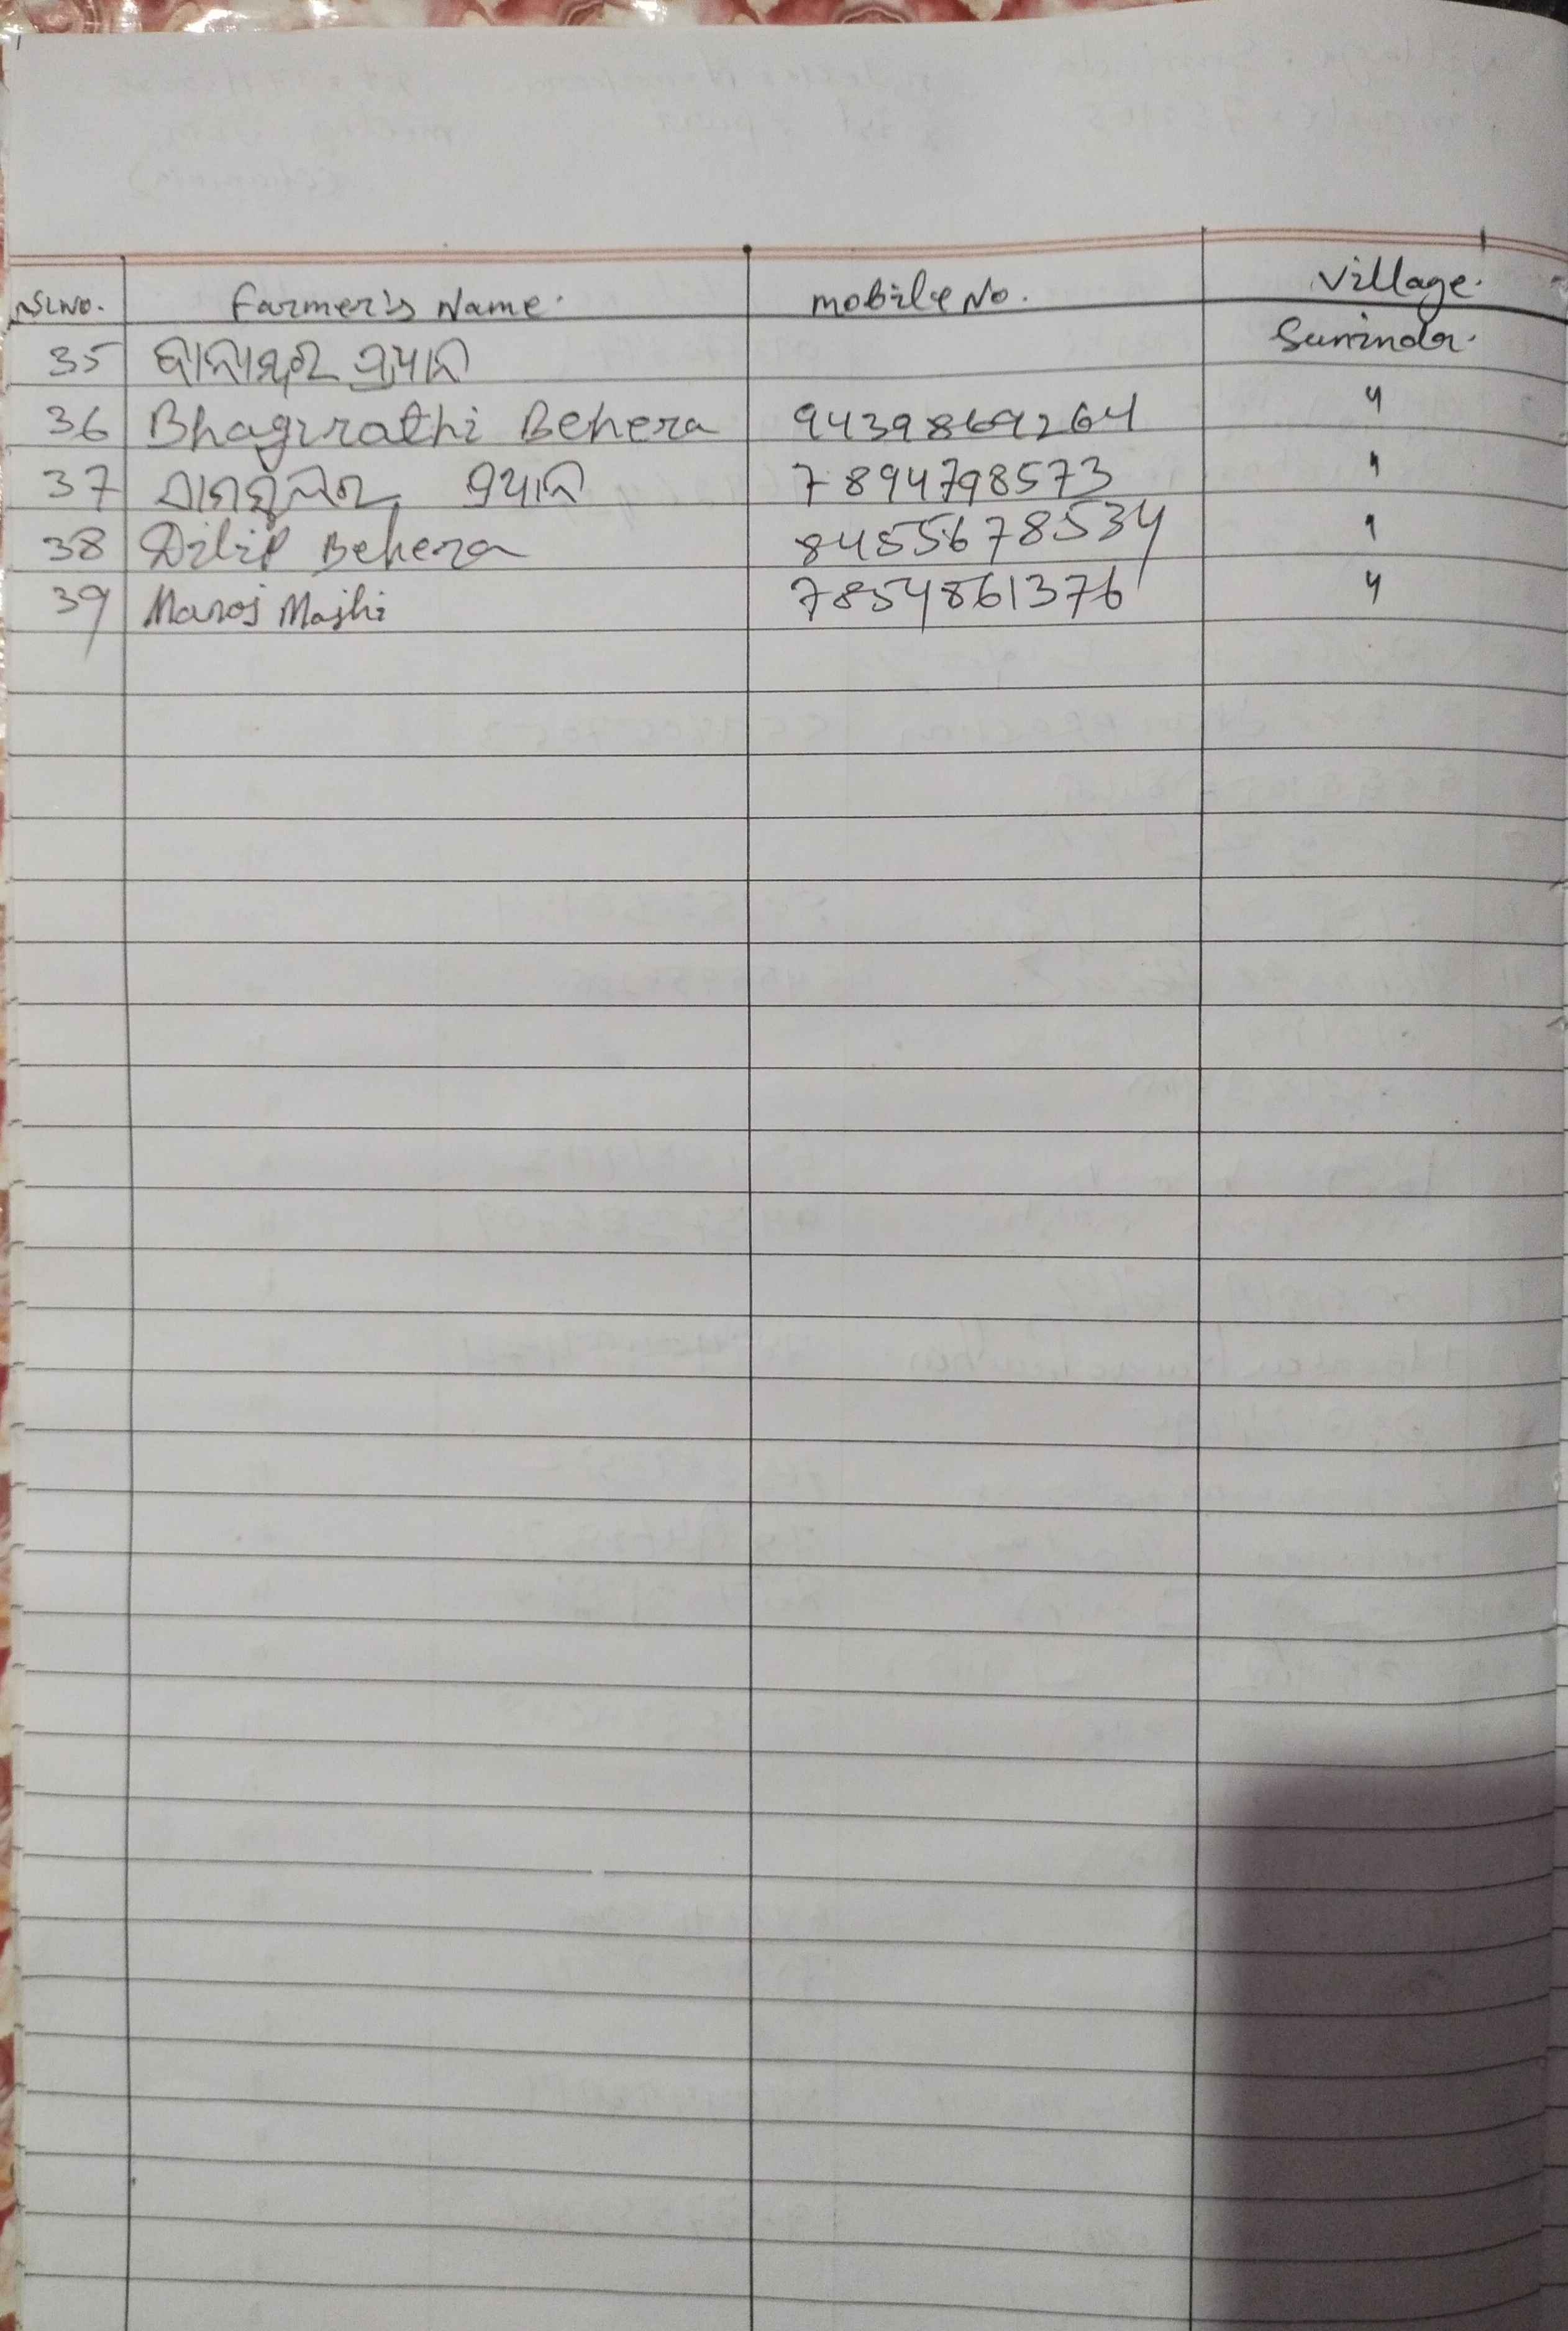 Sl No. Farmer's Name. mobile No. Village.
35 ପ୍ରଧାନ Surrinda.
36 Bhagirathi Behera 9439869264 "
37 ପ୍ରଧାନ 7894798573 "
38 Dilip Behera 8455678534 "
39 Manoj Majhi 7854861376 "